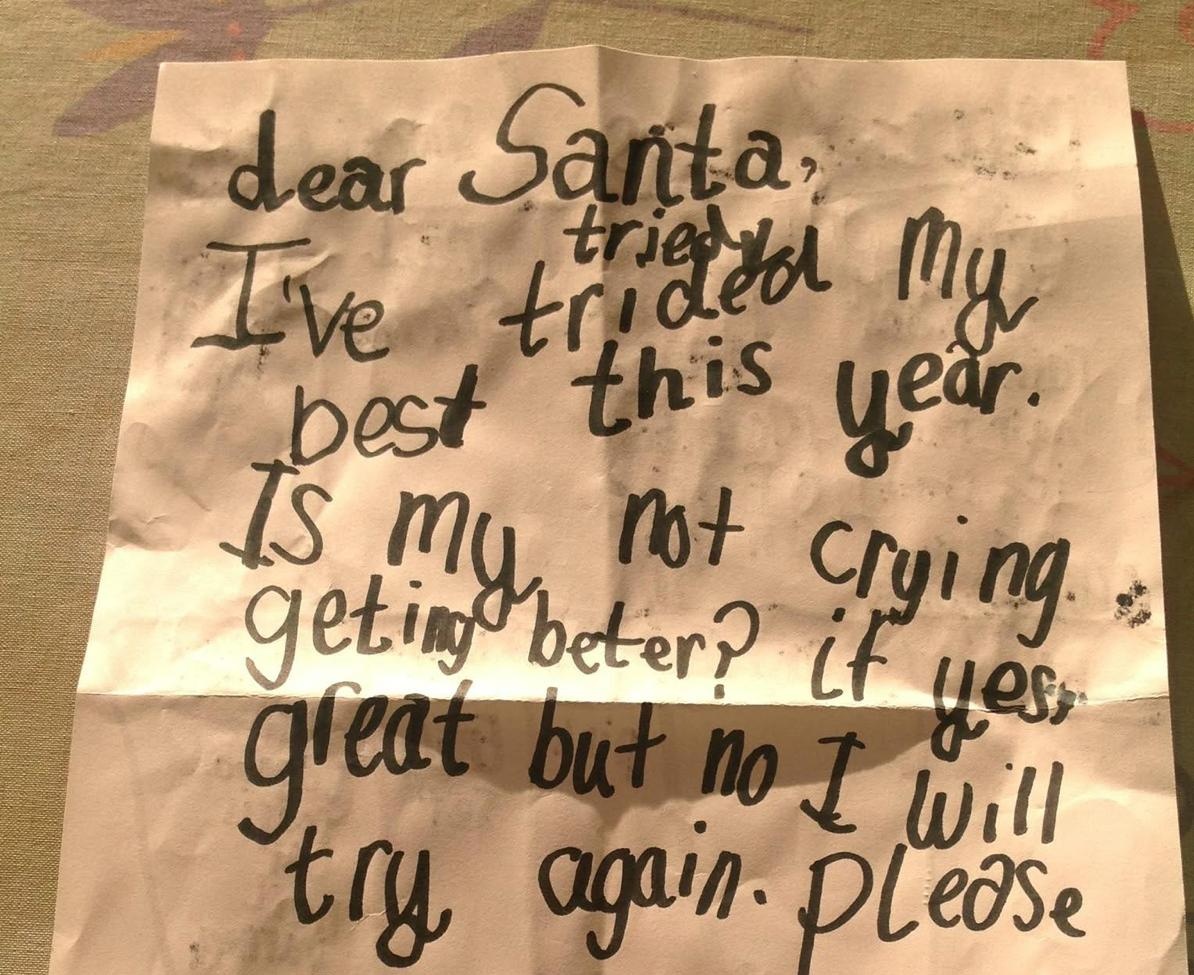 dear Santa,
tried
I've trided my
best this year.
Is my not crying
geting beter? if yes,
great but no I will
try again. please